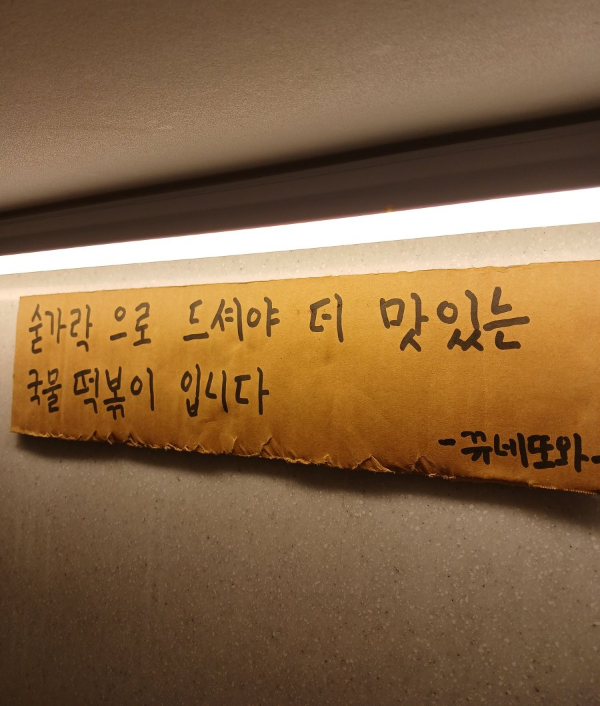 숟가락 으로 드셔야 더 맛있는
국물 떡볶이 입니다
-뀨네또와-